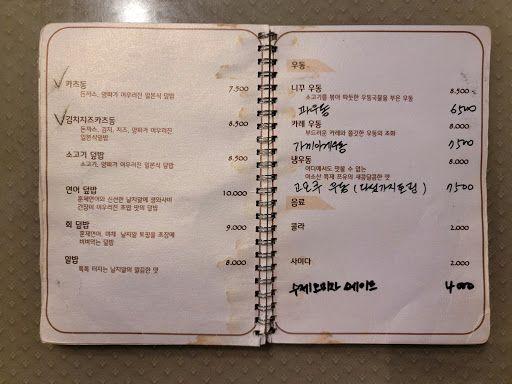 카츠동 7.500
돈까스, 양파가 어우러진 일본식 덮밥
김치치즈카츠동 8.500
돈까스, 김치, 치즈, 양파가 어우러진
일본식덮밥
소고기 덮밥 8.500
소고기, 양파가 어우러진 일본식 덮밥
연어 덮밥 10.000
훈제연어와 신선한 날치알에 생와사비
간장이 어우러진 초밥 맛의 덮밥
회 덮밥 9.000
훈제연어, 야채 날치알 토핑을 초장에
비벼먹는 덮밥
알밥 8.000
톡톡 터지는 날치알의 깔끔한 맛
우동
니꾸 우동 8.500
소고기를 볶아 따뜻한 우동국물을 부은 우동
파우동 6500
카레 우동 8.000
부드러운 카레와 쫄깃한 우동의 조화
가끼아게우동 7500
냉우동 8.000
어디에서도 맛볼 수 없는
미소산 특제 쯔유의 새콤달콤한 맛
고모쿠 우동 (다섯가지토핑) 7500
음료
콜라 2.000
사이다 2.000
수제오미자 에이드 4000